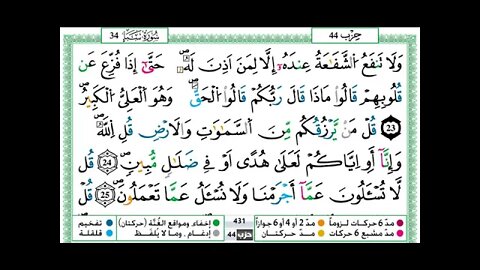 34 سُورَةُ سَبَإٍ حِزْب 44
وَلَا تَنفَعُ ٱلشَّفَٰعَةُ عِندَهُۥٓ إِلَّا لِمَنْ أَذِنَ لَهُۥ حَتَّىٰٓ إِذَا فُزِّعَ عَن
قُلُوبِهِمْ قَالُوا۟ مَاذَا قَالَ رَبُّكُمْ قَالُوا۟ ٱلْحَقَّ وَهُوَ ٱلْعَلِىُّ ٱلْكَبِيرُ
23 قُلْ مَن يَرْزُقُكُم مِّنَ ٱلسَّمَٰوَٰتِ وَٱلَارْضِ قُلِ ٱللَّهُ
وَإِنَّآ أَوِ اِيَّاكُمْ لَعَلَىٰ هُدًى أَوْ فِى ضَلَٰلٍ مُّبِينٍ 24 قُل
لَّا تُسْـَٔلُونَ عَمَّآ أَجْرَمْنَا وَلَا نُسْـَٔلُ عَمَّا تَعْمَلُونَ 25 قُلْ
مدّ 6 حركات لزوماً مدّ 2 أو 4 أو 6 جوازاً 431 إخفاء، ومواقع الغُنَّة (حركتان) تفخيم
مدّ مشبع 6 حركات مدّ حركتان حزب 44 إدغام، وما لا يُلفظ قلقلة